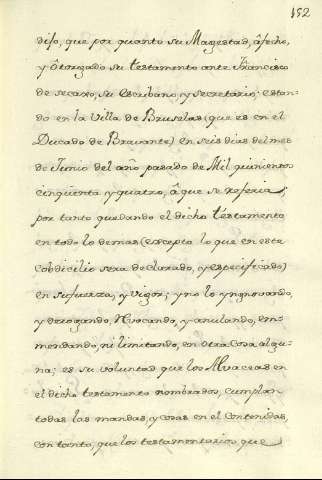 152
dijo, que por quanto su Magestad, à fecho,
y òtorgado su testamento ante Francisco
de secaxo, su Escribano, y secretario; estan-
do en la Villa de Bruselas (que es en el
Ducado de Bravante) en seis dias del mes
de Junio del año pasado de Mil quinientos
cinqüenta y quatro, à que se referia;
por tanto quedando el dicho testamento
en todo lo demas (excepto lo que en este
cobdicilio sera declarado, y especificado)
en su fuerza, y vigor; y no lo ynnovando,
y derogando, Revocando, y anulando, em-
mendando, ni limitando, en otra cosa algu-
na; es su voluntad, que los Alvaceas en
el dicho testamento nombrados, cumplan
todas las mandas, y cosas en el contenidas,
con tanto, que los testamentarios que